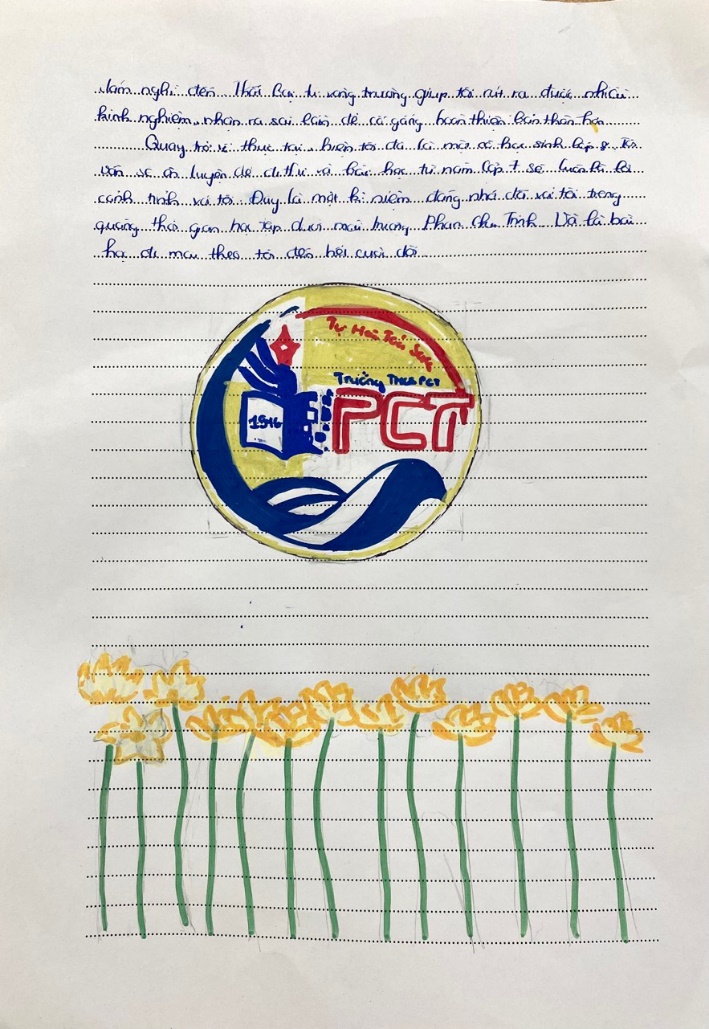 nghĩ đến. Thất bại vang trường giúp tôi rút ra được nhiều
kinh nghiệm, nhận ra sai lầm để cố gắng hoàn thiện bản thân hơn
Quay trở về thực tại, hiện tôi đã là một học sinh lớp 8. Tôi
vẫn sẽ ôn luyện để đi thi và bài học từ năm lớp 7 sẽ luôn là lời
cảnh tỉnh với tôi. Đây là một kỉ niệm đáng nhớ đối với tôi trong
quãng thời gian học tập dưới mái trường Phan Chu Trinh. Và là bài
học đi theo tôi đến hết cuộc đời.
Tự Hào Toả Sáng
Trường THCS PCT
1946
PCT